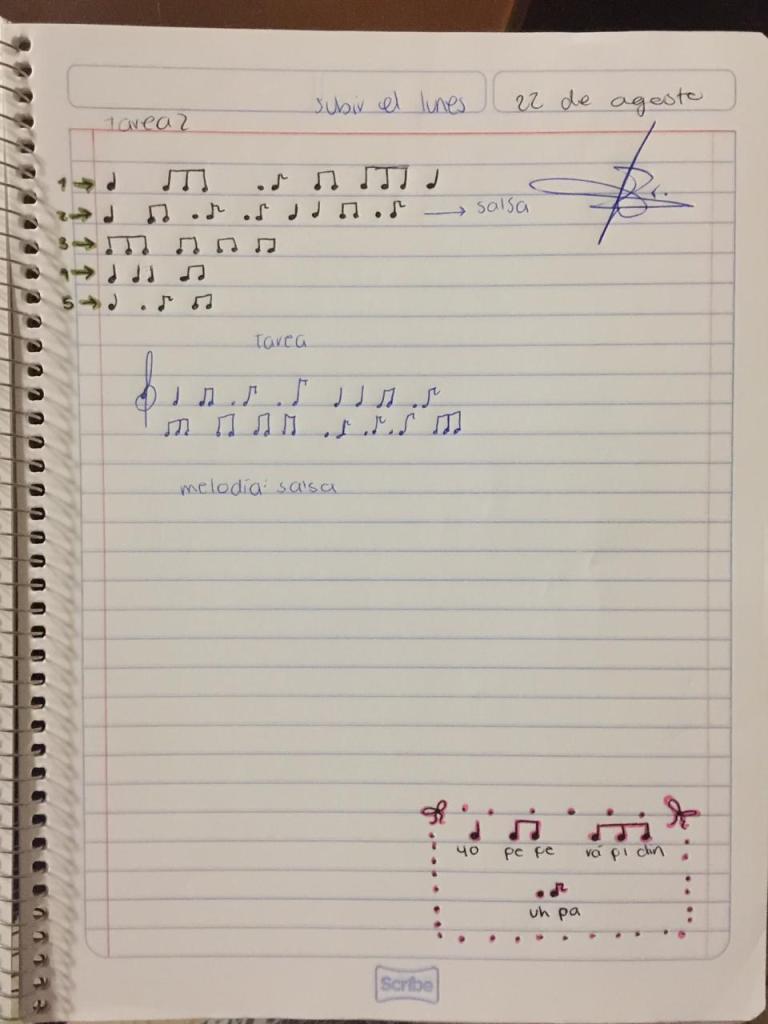 subir el lunes 22 de agosto
Tarea 2
1 → ♩ ♫♪ .♪ ♫ ♫♪ ♩
2 → ♩ ♫ .♪ .♪ ♩ ♩ ♫ .♪ → salsa
3 → ♫♪ ♫ ♫ ♫
4 → ♩ ♩♩ ♫
5 → ♩ .♪ ♫
Tarea
melodía: salsa
yo pe pe rá pi din
uh pa
Scribe